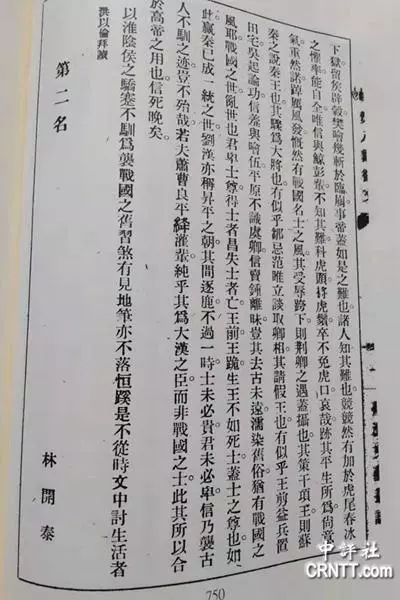 下獄留侯辟穀樊噲幾斬於臨崩事帝蓋如是之難也諸人知其難也競競然有加於虎尾春冰
之懼率能自全唯信與鯨彭輩不知其難料虎頭捋虎鬚卒不免虎口哀哉跡其平生所爲尙意
氣重然諾踔厲風發慨然有戰國名士之風其受辱跨下則荆卿之遇蓋攝也其策干項王則蘇
秦之說秦王也其驟爲大將也有似乎鄒忌范雎立談取卿相其請假王也有似乎王剪益兵置
田宅吳起論功信羞與噲伍平原不識處卿信賣鍾離昧豈其去古未遠濡染舊俗猶有戰國之
風耶戰國之世亂世也君卑士尊得士者昌失士者亡王前王跪生王不如死士蓋士之尊也如
此嬴秦已成一統之世劉漢亦稱昇平之朝其間逐鹿不過一時士未必貴君未必卑信乃襲古
人不馴之迹豈不殆哉若夫蕭曹良平絳灌輩純乎其爲大漢之臣而非戰國之士此其所以合
於高帝之用也信死晚矣。
以淮陰侯之驕蹇不馴爲襲戰國之舊習煞有見地筆亦不落恒蹊是不從時文中討生活者
洪以倫拜讀
第二名 林開泰
750
中評社
CRNTT.com